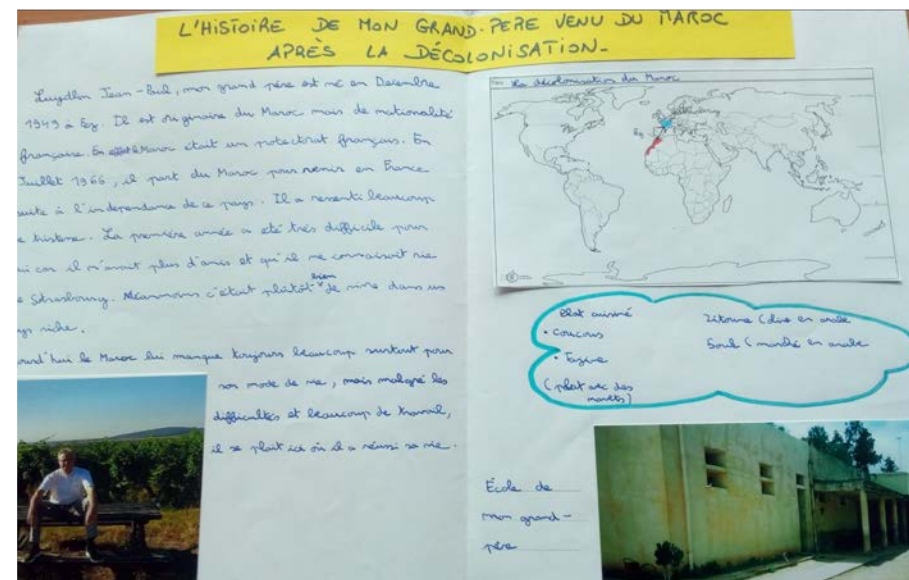 L'HISTOIRE DE MON GRAND-PERE VENU DU MAROC
APRÈS LA DÉCOLONISATION-
Jean-Paul, mon grand père est né en Décembre
1949 à. Il est originaire du Maroc mais de nationalité
française. En effet le Maroc était un protectorat français. En
Juillet 1966, il part du Maroc pour venir en France
suite à l'independance de ce pays. Il a ressenti beaucoup
e tristesse. La première année a été très difficile pour
ui car il n'avait plus d'amis et qu'il ne connaissait rie
e Strasbourg. Néanmoins c'était plutôt bien de vivre dans un
ys riche.
ourd'hui le Maroc lui manque toujours beaucoup surtout pour
son mode de vie, mais malgré les
difficultés et beaucoup de travail,
il se plait ici où il a réussi sa vie.
La décolonisation du Maroc
Plat cuisiné
• Coucous
• Tagine
(plat avec des
Zitoune (olive en arabe
Souk (marché en arabe
École de
mon grand-
père